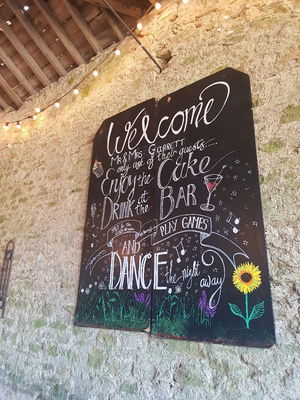 Welcome
Mr & Mrs GARRETT
only one of their guests.....
Enjoy the Cake
DRINK at the BAR
PLAY GAMES
AND
DANCE
the night
away